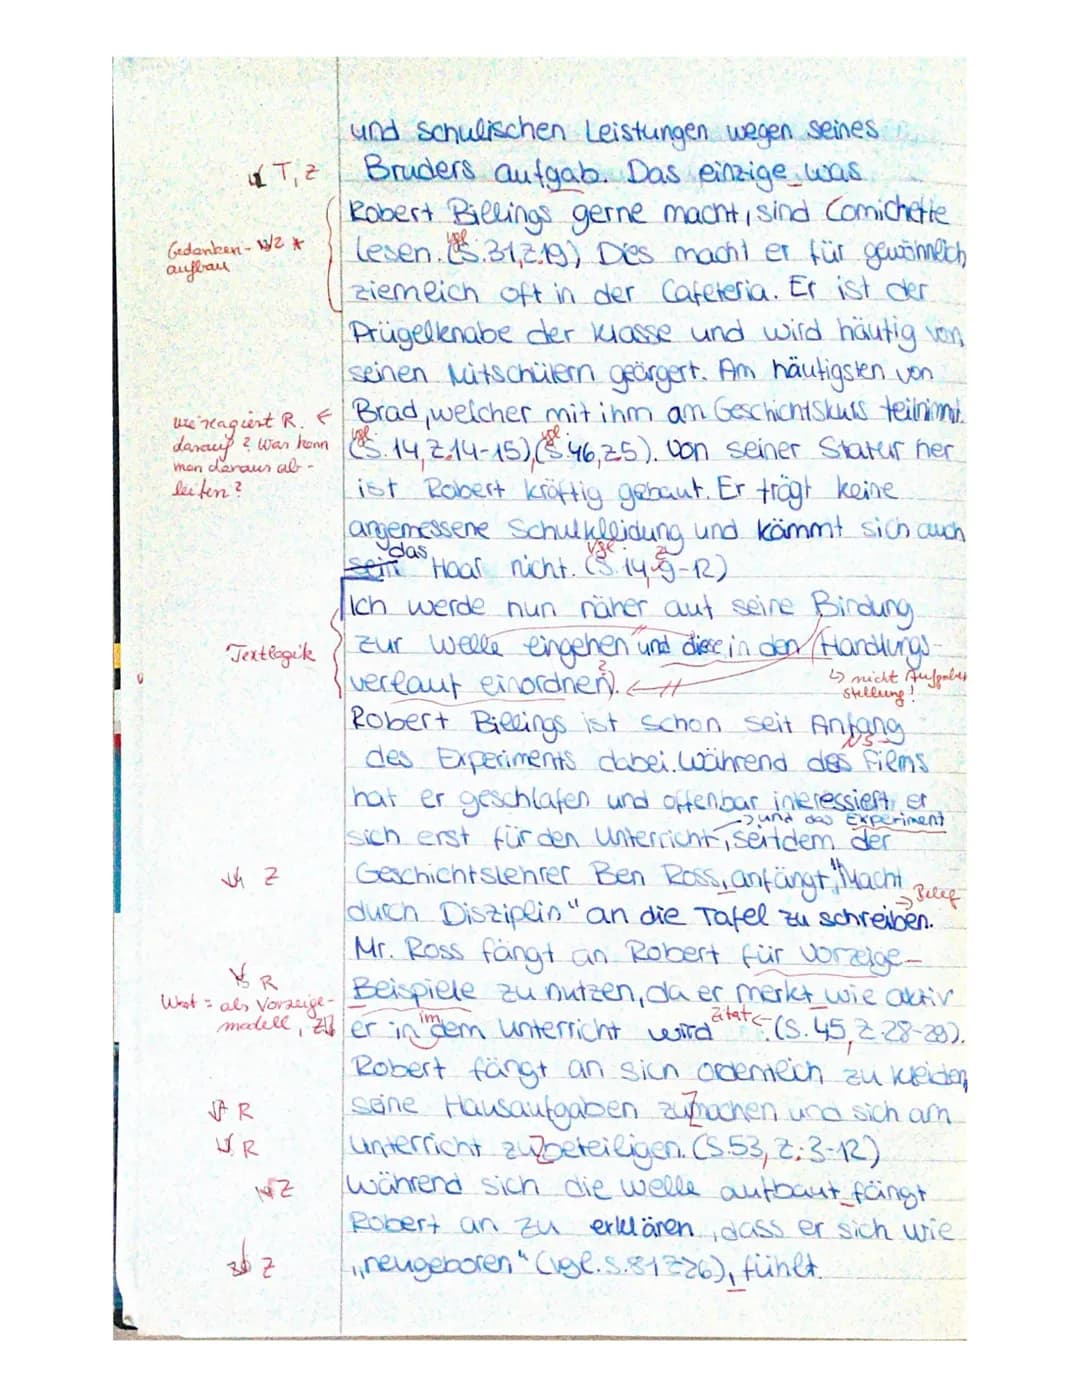 und schulischen Leistungen wegen seines
T, Z
Bruders aufgab. Das einzige was
Robert Billings gerne macht, sind Comichefte
Gedanken- W2 *
aufbau
lesen. (vgl. S.31, Z.19) Dies macht er für gewöhnlich
ziemlich oft in der Cafeteria. Er ist der
Prügelknabe der Klasse und wird häufig von
seinen Mitschülern geärgert. Am häufigsten von
Brad, welcher mit ihm am Geschichtskurs teilnimmt.
wie reagiert R.
darauf? Was kann
man daraus ab-
leiten?
(vgl. S. 14, Z.14-15), (vgl. S.46, Z5). Von seiner Statur her
ist Robert kräftig gebaut. Er trägt keine
angemessene Schulkleidung und kämmt sich auch
sein das Haar nicht. (vgl. S. 14, Z 9-12)
Ich werde nun näher auf seine Bindung
Textlogik
zur Welle eingehen und diese in den Handlungs-
verlauf einordnen.
↳ nicht Aufgaben
stellung!
Robert Billings ist schon seit Anfang
des Experiments dabei. Während des Films
hat er geschlafen und offenbar interessiert er
→ und das Experiment
sich erst für den Unterricht, seitdem der
Z
Geschichtslehrer Ben Ross, anfängt, "Macht
→ Beleg
durch Disziplin" an die Tafel zu schreiben.
Mr. Ross fängt an Robert für Vorzeige-
R
Wort = als Vorzeige-
modell,
Beispiele zu nutzen, da er merkt wie aktiv
er in im dem Unterricht wird Zitat (S. 45, Z. 28-29).
Robert fängt an sich ordentlich zu kleiden,
R
seine Hausaufgaben zumachen und sich am
R
Unterricht zubeteiligen. (S.53, Z: 3-12)
Z
Während sich die Welle aufbaut fängt
Robert an zu erklären, dass er sich wie
Z
„neugeboren" (vgl. S. 81 Z26), fühlt.